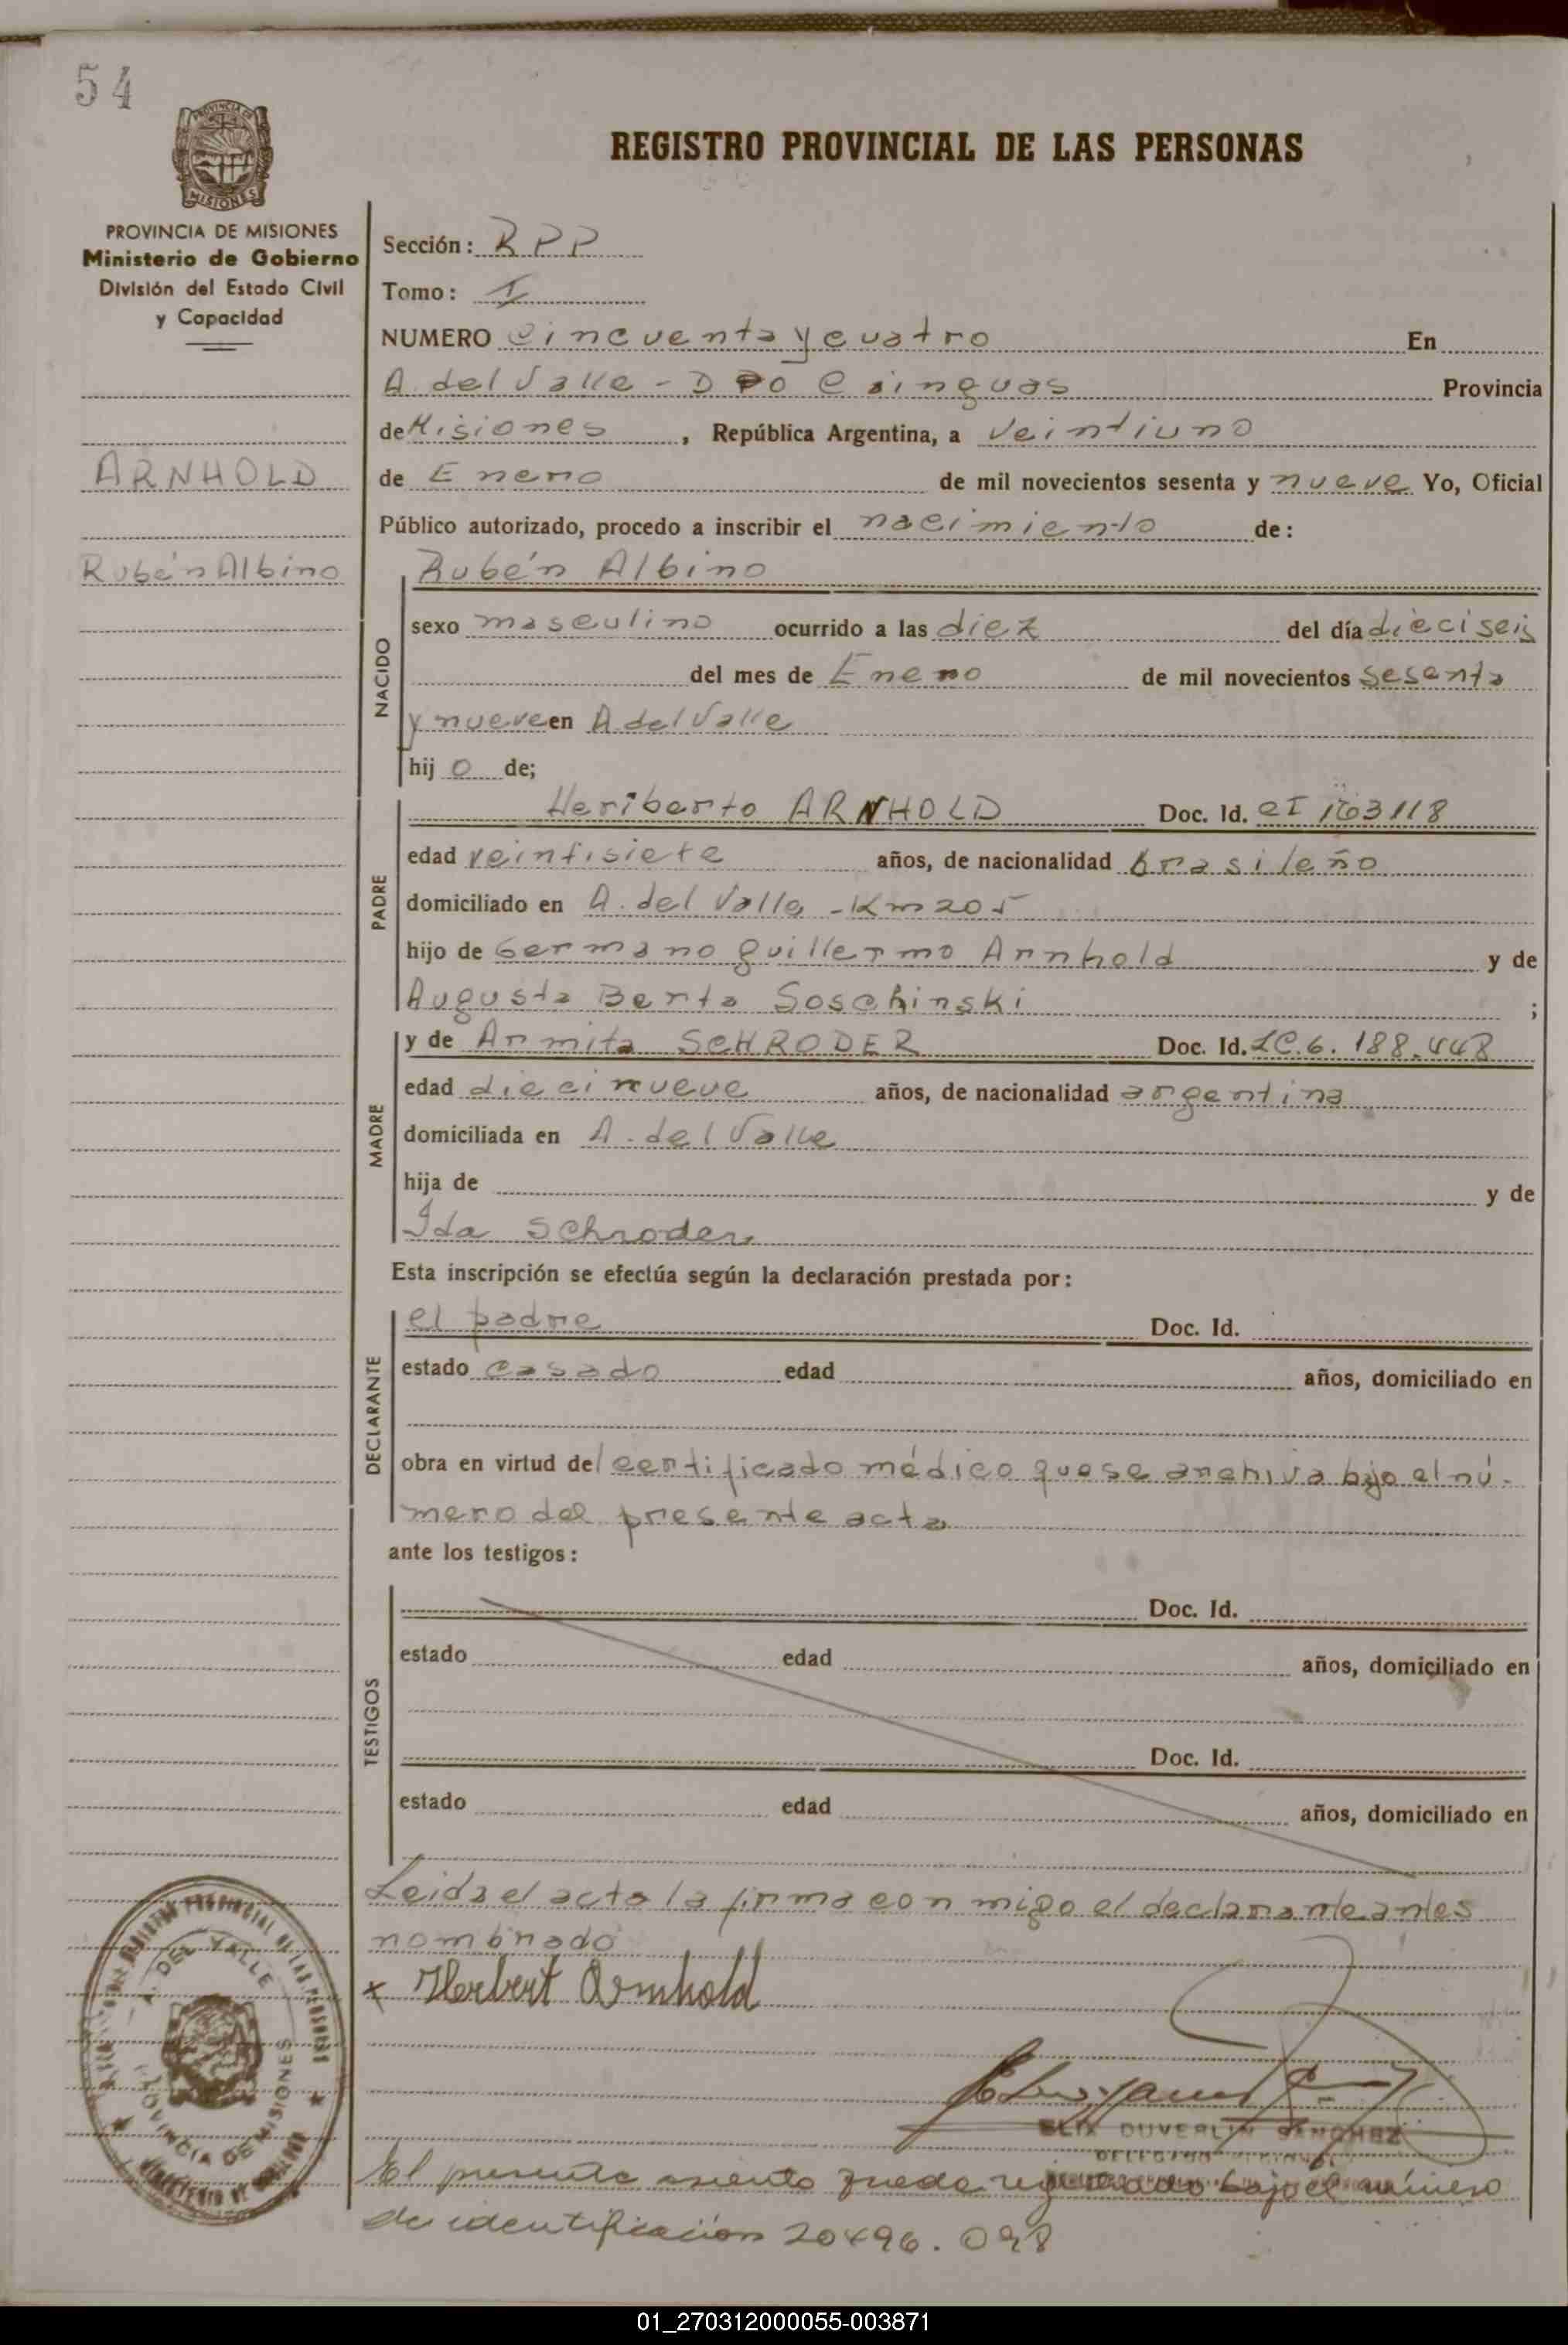 54
PROVINCIA DE
MISIONES
REGISTRO PROVINCIAL DE LAS PERSONAS
PROVINCIA DE MISIONES
Ministerio de Gobierno
División del Estado Civil
y Capacidad
ARNHOLD
Rubén Albino
Sección: RPP
Tomo: I
NUMERO Cincuenta y cuatro En
A. del Valle - DPO Cainguas Provincia
de Misiones, República Argentina, a Veintiuno
de Enero de mil novecientos sesenta y nueve Yo, Oficial
Público autorizado, procedo a inscribir el nacimiento de:
NACIDO
Rubén Albino
sexo masculino ocurrido a las diez del día dieciseis
del mes de Enero de mil novecientos sesenta
y nueve en A del Valle
hij o de;
PADRE
Heriberto ARNHOLD Doc. Id. CI 163118
edad veintisiete años, de nacionalidad brasileño
domiciliado en A. del Valle - Km 205
hijo de Germano guillermo Arnhold y de
Augusta Berta Soschinski ;
MADRE
y de Armita SCHRODER Doc. Id. LC. 6.188.448
edad diecinueve años, de nacionalidad argentina
domiciliada en A. del Valle
hija de y de
Ida Schroder
Esta inscripción se efectúa según la declaración prestada por:
DECLARANTE
el padre Doc. Id.
estado casado edad años, domiciliado en
obra en virtud del certificado médico que se archiva bajo el nú-
mero del presente acta
ante los testigos:
TESTIGOS
Doc. Id.
estado edad años, domiciliado en
Doc. Id.
estado edad años, domiciliado en
Leida el acta la firma con migo el declarante antes
nombrado
x Herbert Arnhold
A. DEL VALLE
PROVINCIA DE MISIONES
DUVERLIN SANCHEZ
El presente asiento queda registrado bajo el número
de identificación 20496.098
01_270312000055-003871